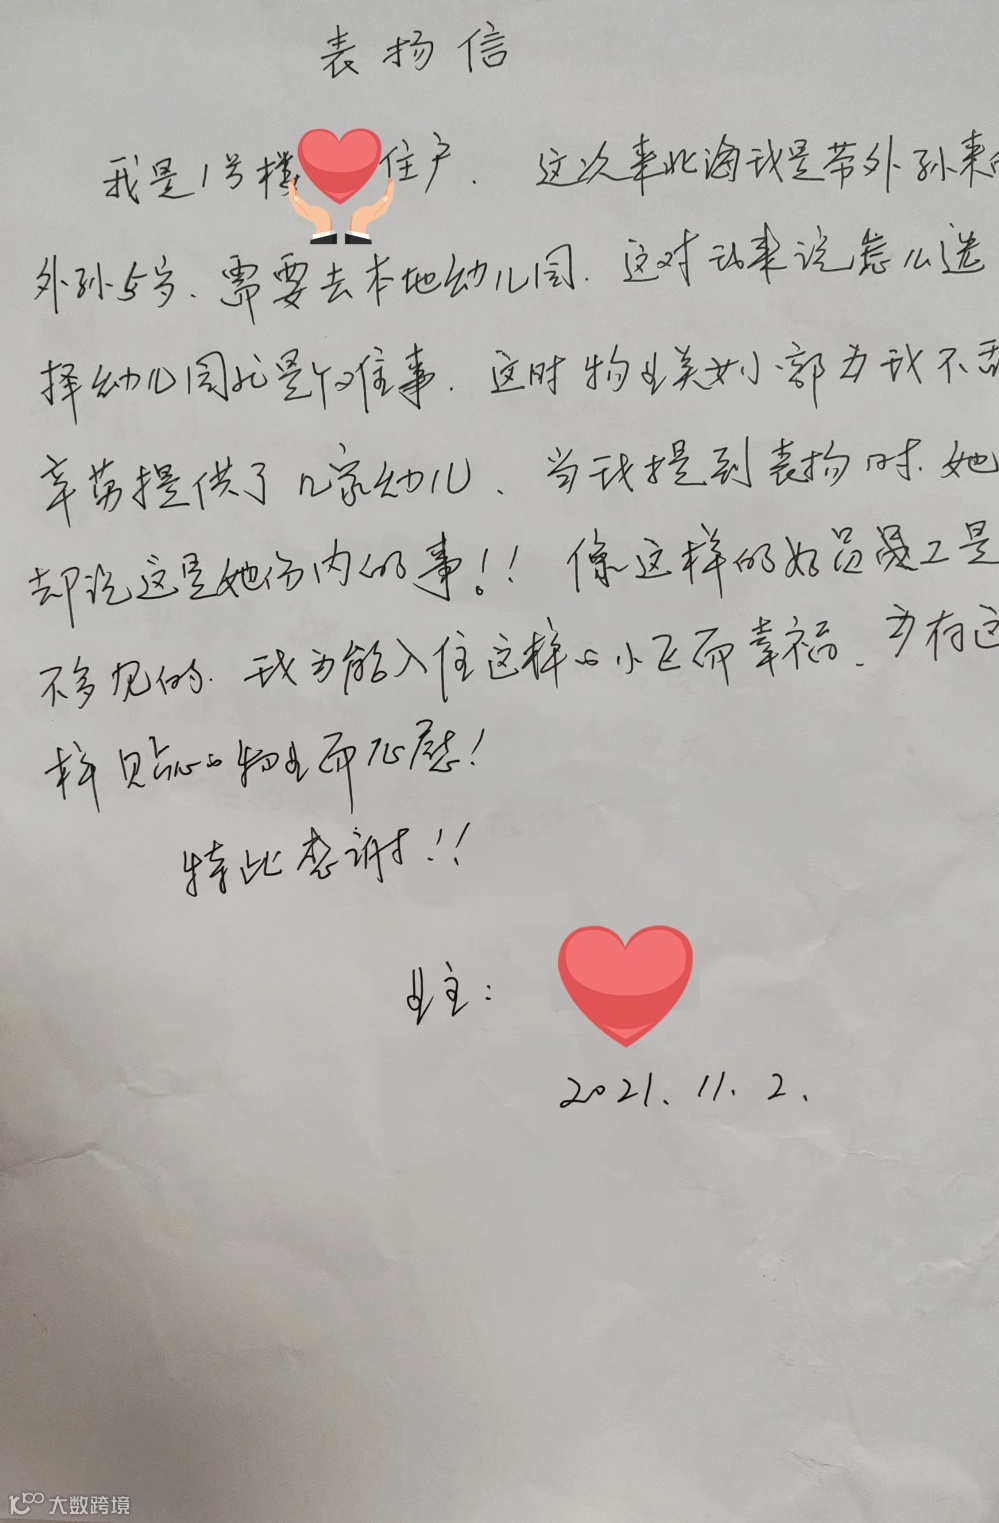 表扬信
我是1号楼 住户. 这次来北海我是带外孙来的
外孙5岁、需要去本地幼儿园. 这对我来说怎么选
择幼儿园 是个难事. 这时物业美女小郭为我不辞
辛劳提供了几家幼儿、当我提到表扬时.她
却说这是她份内的事!! 像这样的好员工是
不多见的. 我为能入住这样的小区而幸福、为有这
样贴心的物业而心慰!
特此感谢!!
业主:
2021.11.2.
大数跨境